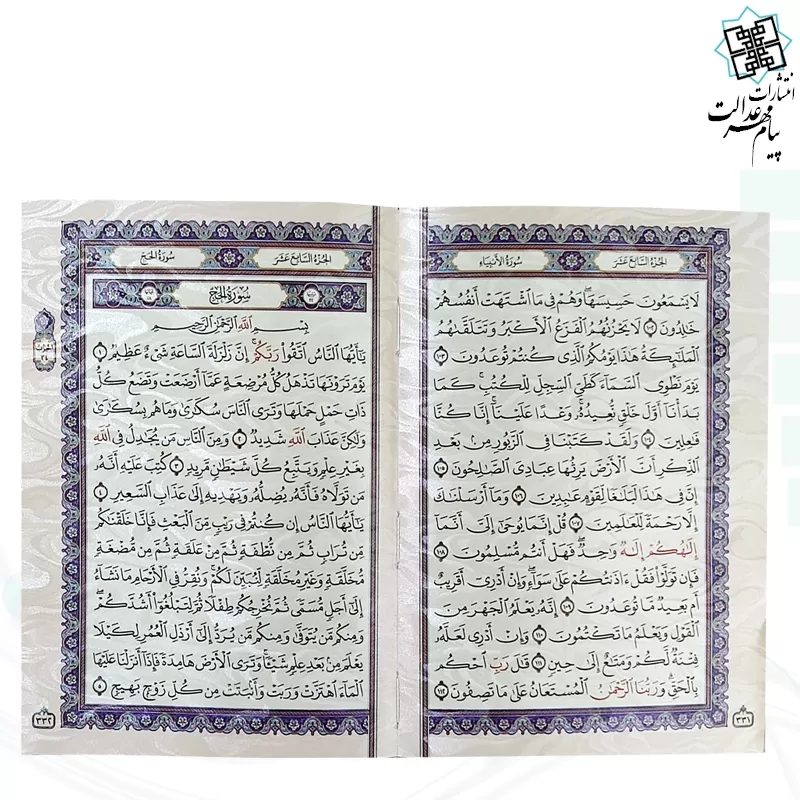 انتشارات
پیام مهر عدالت
الجُزءُ السَّابِعَ عَشَرَ
سُورَةُ الأَنبِيَاءِ
لَا يَسْمَعُونَ حَسِيسَهَا ۖ وَهُمْ فِي مَا ٱشْتَهَتْ أَنفُسُهُمْ
خَٰلِدُونَ ١٠٢ لَا يَحْزُنُهُمُ ٱلْفَزَعُ ٱلْأَكْبَرُ وَتَتَلَقَّىٰهُمُ
ٱلْمَلَٰٓئِكَةُ هَٰذَا يَوْمُكُمُ ٱلَّذِي كُنتُمْ تُوعَدُونَ ١٠٣
يَوْمَ نَطْوِي ٱلسَّمَآءَ كَطَيِّ ٱلسِّجِلِّ لِلْكُتُبِ ۚ كَمَا
بَدَأْنَآ أَوَّلَ خَلْقٍ نُّعِيدُهُۥ ۚ وَعْدًا عَلَيْنَآ ۚ إِنَّا كُنَّا
فَٰعِلِينَ ١٠٤ وَلَقَدْ كَتَبْنَا فِي ٱلزَّبُورِ مِنۢ بَعْدِ
ٱلذِّكْرِ أَنَّ ٱلْأَرْضَ يَرِثُهَا عِبَادِيَ ٱلصَّٰلِحُونَ ١٠٥
إِنَّ فِي هَٰذَا لَبَلَٰغًا لِّقَوْمٍ عَٰبِدِينَ ١٠٦ وَمَآ أَرْسَلْنَٰكَ
إِلَّا رَحْمَةً لِّلْعَٰلَمِينَ ١٠٧ قُلْ إِنَّمَا يُوحَىٰٓ إِلَيَّ أَنَّمَآ
إِلَٰهُكُمْ إِلَٰهٌ وَٰحِدٌ ۖ فَهَلْ أَنتُم مُّسْلِمُونَ ١٠٨
فَإِن تَوَلَّوْا۟ فَقُلْ ءَاذَنتُكُمْ عَلَىٰ سَوَآءٍ ۖ وَإِنْ أَدْرِيٓ أَقَرِيبٌ
أَم بَعِيدٌ مَّا تُوعَدُونَ ١٠٩ إِنَّهُۥ يَعْلَمُ ٱلْجَهْرَ مِنَ
ٱلْقَوْلِ وَيَعْلَمُ مَا تَكْتُمُونَ ١١٠ وَإِنْ أَدْرِي لَعَلَّهُۥ
فِتْنَةٌ لَّكُمْ وَمَتَٰعٌ إِلَىٰ حِينٍ ١١١ قَٰلَ رَبِّ ٱحْكُم
بِٱلْحَقِّ ۗ وَرَبُّنَا ٱلرَّحْمَٰنُ ٱلْمُسْتَعَانُ عَلَىٰ مَا تَصِفُونَ ١١٢
٣٣١
الجُزءُ السَّابِعَ عَشَرَ
سُورَةُ الحَجِّ
سُورَةُ الحَجِّ
بِسْمِ ٱللَّهِ ٱلرَّحْمَٰنِ ٱلرَّحِيمِ
يَٰٓأَيُّهَا ٱلنَّاسُ ٱتَّقُوا۟ رَبَّكُمْ ۚ إِنَّ زَلْزَلَةَ ٱلسَّاعَةِ شَيْءٌ عَظِيمٌ ١
يَوْمَ تَرَوْنَهَا تَذْهَلُ كُلُّ مُرْضِعَةٍ عَمَّآ أَرْضَعَتْ وَتَضَعُ كُلُّ
ذَاتِ حَمْلٍ حَمْلَهَا وَتَرَى ٱلنَّاسَ سُكَٰرَىٰ وَمَا هُم بِسُكَٰرَىٰ
وَلَٰكِنَّ عَذَابَ ٱللَّهِ شَدِيدٌ ٢ وَمِنَ ٱلنَّاسِ مَن يُجَٰدِلُ فِي ٱللَّهِ
بِغَيْرِ عِلْمٍ وَيَتَّبِعُ كُلَّ شَيْطَٰنٍ مَّرِيدٍ ٣ كُتِبَ عَلَيْهِ أَنَّهُۥ
مَن تَوَلَّاهُ فَأَنَّهُۥ يُضِلُّهُۥ وَيَهْدِيهِ إِلَىٰ عَذَابِ ٱلسَّعِيرِ ٤
يَٰٓأَيُّهَا ٱلنَّاسُ إِن كُنتُمْ فِي رَيْبٍ مِّنَ ٱلْبَعْثِ فَإِنَّا خَلَقْنَٰكُم
مِّن تُرَابٍ ثُمَّ مِن نُّطْفَةٍ ثُمَّ مِنْ عَلَقَةٍ ثُمَّ مِن مُّضْغَةٍ
مُّخَلَّقَةٍ وَغَيْرِ مُخَلَّقَةٍ لِّنُبَيِّنَ لَكُمْ ۚ وَنُقِرُّ فِي ٱلْأَرْحَامِ مَا نَشَآءُ
إِلَىٰٓ أَجَلٍ مُّسَمًّى ثُمَّ نُخْرِجُكُمْ طِفْلًا ثُمَّ لِتَبْلُغُوٓا۟ أَشُدَّكُمْ ۖ
وَمِنكُم مَّن يُتَوَفَّىٰ وَمِنكُم مَّن يُرَدُّ إِلَىٰٓ أَرْذَلِ ٱلْعُمُرِ لِكَيْلَا
يَعْلَمَ مِنۢ بَعْدِ عِلْمٍ شَيْـًٔا ۚ وَتَرَى ٱلْأَرْضَ هَامِدَةً فَإِذَآ أَنزَلْنَا عَلَيْهَا
ٱلْمَآءَ ٱهْتَزَّتْ وَرَبَتْ وَأَنۢبَتَتْ مِن كُلِّ زَوْجٍۭ بَهِيجٍ ٥
٣٣٢